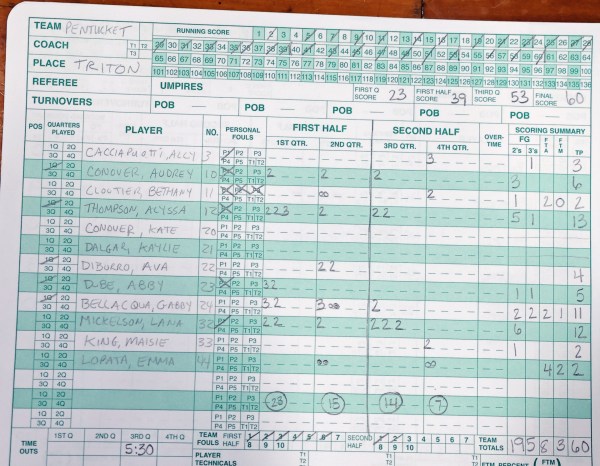 TEAM PENTUCKET RUNNING SCORE 1 2 3 4 5 6 7 8 9 10 11 12 13 14 15 16 17 18 19 20 21 22 23 24 25 26 27 28
COACH T1 T2 29 30 31 32 33 34 35 36 37 38 39 40 41 42 43 44 45 46 47 48 49 50 51 52 53 54 55 56 57 58 59 60 61 62 63 64
PLACE TRITON T3 65 66 67 68 69 70 71 72 73 74 75 76 77 78 79 80 81 82 83 84 85 86 87 88 89 90 91 92 93 94 95 96 97 98 99 100
101 102 103 104 105 106 107 108 109 110 111 112 113 114 115 116 117 118 119 120 121 122 123 124 125 126 127 128 129 130 131 132 133 134 135 136
REFEREE UMPIRES FIRST Q SCORE 23 FIRST HALF SCORE 39 THIRD Q SCORE 53 FINAL SCORE 60
TURNOVERS POB — POB — POB — POB —
POS QUARTERS PLAYED PLAYER NO. PERSONAL FOULS FIRST HALF SECOND HALF OVER-TIME SCORING SUMMARY
1ST QTR. 2ND QTR. 3RD QTR. 4TH QTR. FG 2's 3's FTA FTM TP
CACCIAPUOTTI, ALLY 3 3 1 3
CONOVER, AUDREY 10 2 2 2 3 6
CLOUTIER, BETHANY 11 oo 2 1 2 0 2
THOMPSON, ALYSSA 12 223 2 22 5 1 13
CONOVER, KATE 20
DALGAR, KAYLIE 21
DIBURRO, AVA 22 22 4
DUBE, ABBY 23 32 1 1 5
BELLACQUA, GABBY 24 32 3oo 2 2 2 2 1 11
MICKELSON, LANA 32 22 2 222 6 12
KING, MAISIE 33 2 1 2
LOPATA, EMMA 44 oo oo 4 2 2
23 15 14 7
TIME OUTS 1ST Q 2ND Q 3RD Q 4TH Q TEAM FOULS FIRST HALF 1 2 3 4 5 6 7 8 9 10 SECOND HALF 1 2 3 4 5 6 7 8 9 10 TEAM TOTALS 19 5 8 3 60
5:30
PLAYER TECHNICALS T1 T2 T1 FTM PERCENT (FTM